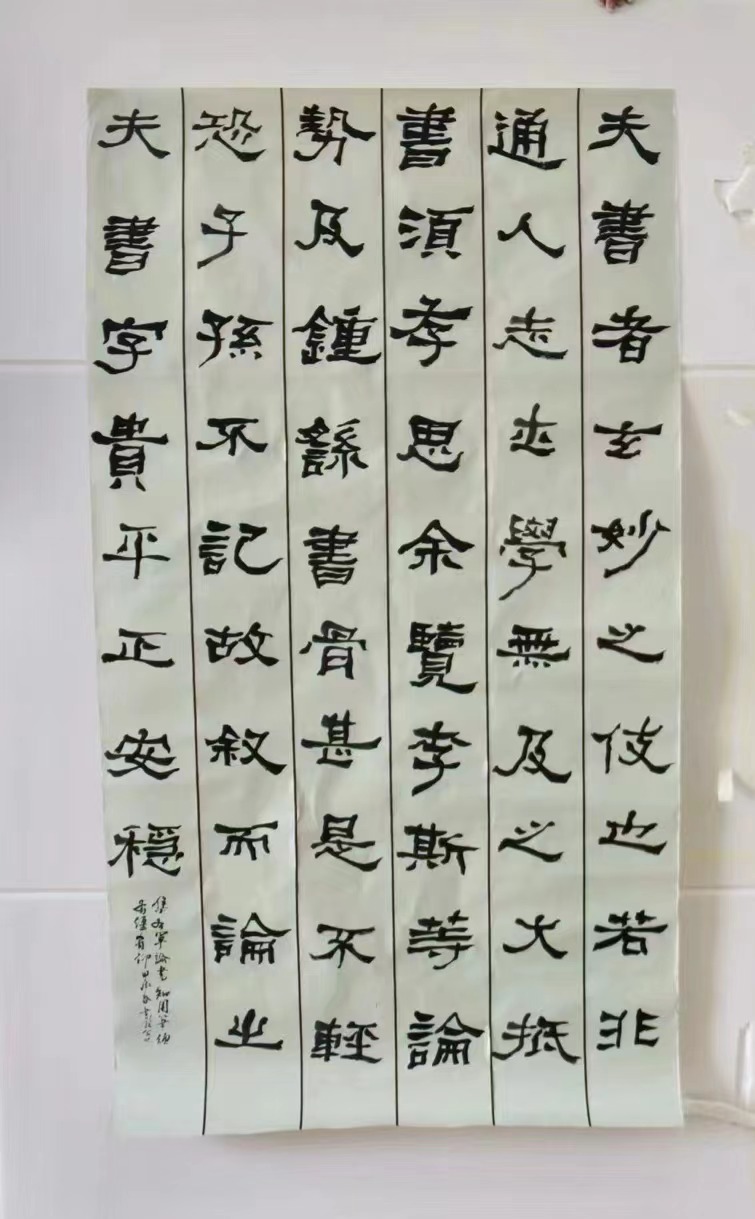 夫書者玄妙之伎也若非
通人志士學無及之大抵
書須存思余覽李斯等論
勢及鍾繇書骨甚是不輕
恐子孫不記故叙而論之
夫書字貴平正安穩